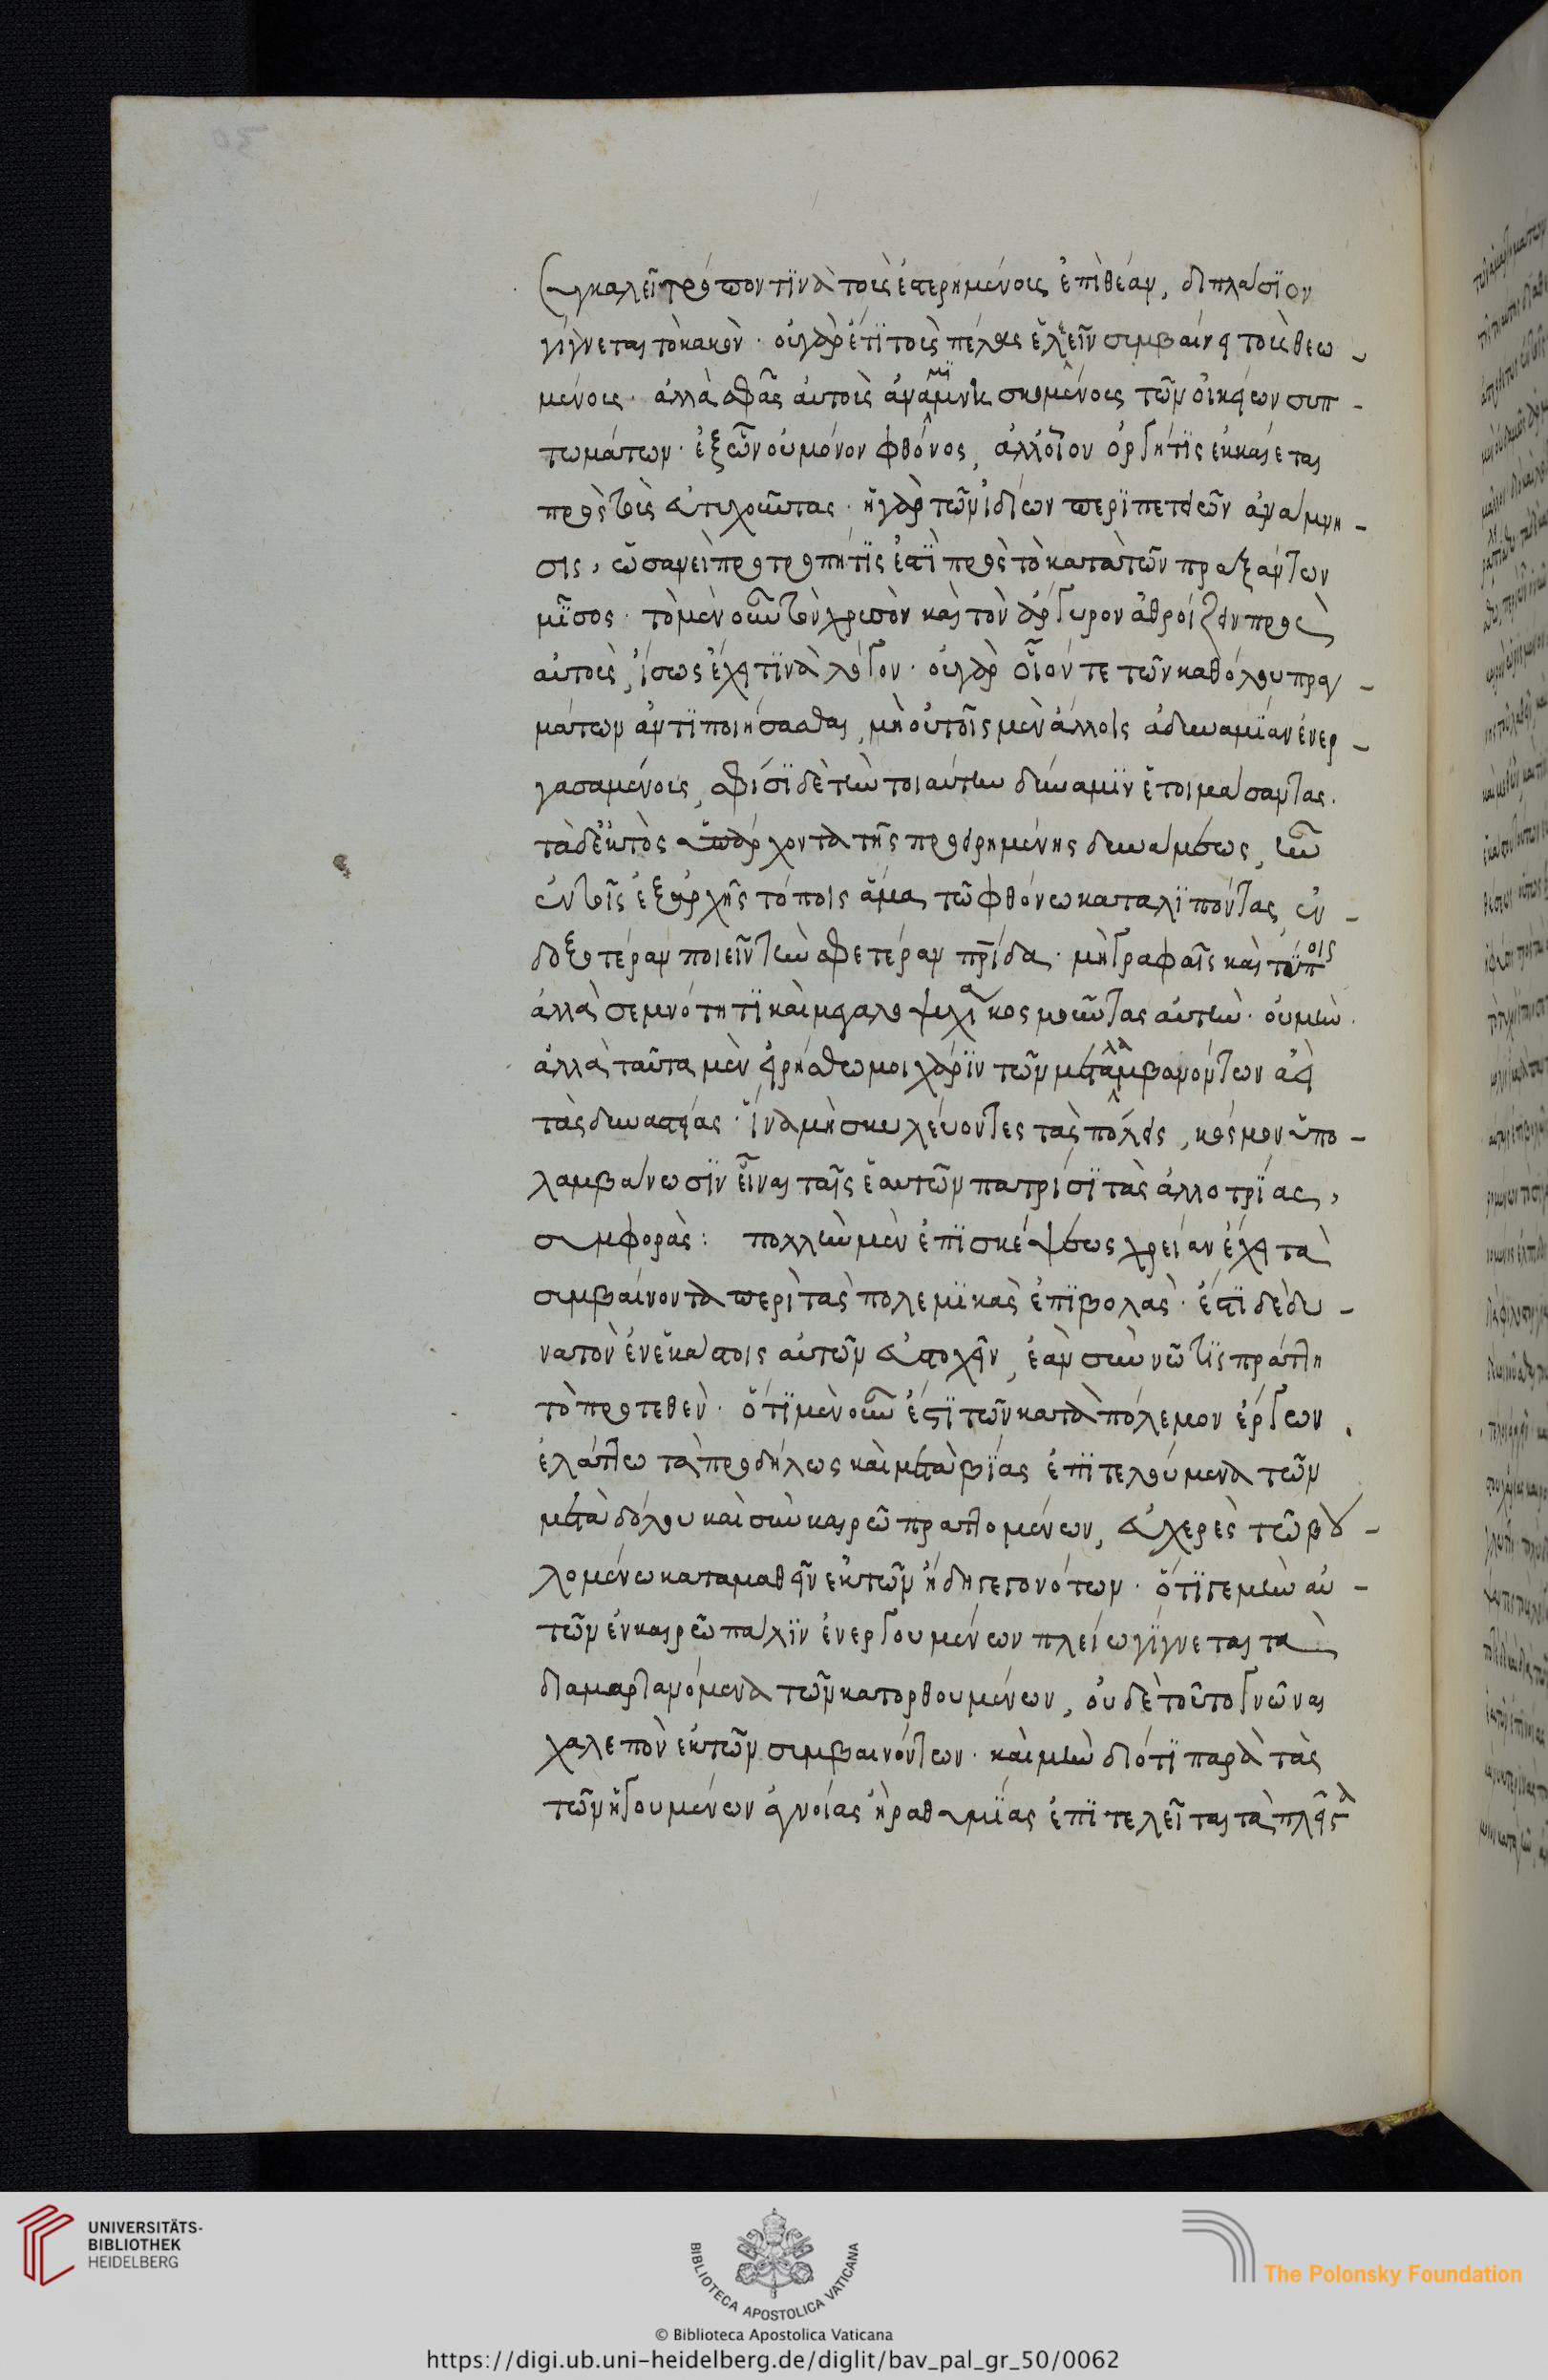 συγκαλεῖ τρόπον τινὰ τοὺς ἐστερημένους ἐπὶ θέαν, διπλάσϊον
γίγνεται τὸ κακόν · οὐ γὰρ ἔτϊ τοὺς πέλας ἐλεεῖν συμβαίνει τοὺς θεω-
μένους · ἀλλὰ σφᾶς αὐτοὺς ἀναμιμνησκομένους τῶν οἰκείων συπ-
τωμάτων · ἐξ ὧν οὐ μόνον φθόνος, ἀλλ' οἷον ὀργή τϊς ἐκκαίεται
πρὸς τοὺς εὐτυχοῦντας · ἡ γὰρ τῶν ἰδίων περϊπετειῶν ἀνάμνη-
σις, ὡσανεὶ προτροπή τϊς ἐστϊ πρὸς τὸ κατὰ τῶν πραξάντων
μῖσος · τὸ μὲν οὖν τὸν χρυσὸν καὶ τὸν ἄργυρον ἀθροίζειν πρὸς
αὐτοὺς, ἴσως ἔχει τϊνὰ λόγον · οὐ γὰρ οἷόν τε τῶν καθόλου πραγ-
μάτων ἀντϊποιήσασθαι, μὴ οὐ τοῖς μὲν ἄλλοις ἀδυναμίαν ἐνερ-
γασαμένους, σφίσϊ δὲ τὴν τοιαύτην δύναμϊν ἑτοιμάσαντας.
τὰ δ' ἐκτὸς ὑπάρχοντα τῆς προειρημένης δυνάμεως, ἦν
ἐν τοῖς ἐξ ἀρχῆς τόποις ἅμα τῶ φθόνω καταλϊπόντας ἐν-
δοξοτέραν ποιεῖν τὴν σφετέραν πρίδα · μὴ γραφαῖς καὶ τύποις
ἀλλὰ σεμνότητϊ καὶ μεγαλοψυχία κοσμοῦντας αὐτὴν · οὐ μὴν
ἀλλὰ ταῦτα μὲν εἰρήσθω μοι χάρϊν τῶν μεταλαμβανόντων ἀεὶ
τὰς δυναστείας · ἵνα μὴ σκυλεύοντες τὰς πόλεις, κόσμον ὑπο-
λαμβάνωσϊν εἶναι ταῖς ἑαυτῶν πατρίσϊ τὰς ἀλλοτρίας,
συμφοράς : πολλὴν μὲν ἐπϊσκέψεως χρείαν ἔχει τὰ
συμβαίνοντα περὶ τὰς πολεμϊκὰς ἐπϊβολάς · ἔστϊ δὲ δυ-
νατὸν ἐν ἑκάστοις αὐτῶν εὐστοχεῖν, ἐὰν σὺν νῶ τϊς πράττη
τὸ προτεθέν · ὅτϊ μὲν οὖν ἐστϊ τῶν κατὰ πόλεμον ἔργων
ἐλάττω τὰ προδήλως καὶ μετὰ βίας ἐπϊτελούμενα τῶν
μετὰ δόλου καὶ σὺν καιρῶ πραττομένων, εὐχερὲς τῶ βου-
λομένω καταμαθεῖν ἐκ τῶν ἤδη γεγονότων · ὅτϊ γε μὴν αὐ-
τῶν ἐν καιρῶ πάλϊν ἐνεργουμένων πλείω γίγνεται τὰ
διαμαρτανόμενα τῶν κατορθουμένων, οὐδὲ τοῦτο γνῶναι
χαλεπὸν ἐκ τῶν συμβαινόντων · καὶ μὴν διότϊ παρὰ τὰς
τῶν ἡγουμένων ἀγνοίας ἢ ραθυμίας ἐπϊτελεῖται τὰ πλεῖστα
UNIVERSITÄTS-
BIBLIOTHEK
HEIDELBERG
BIBLIOTECA APOSTOLICA VATICANA
The Polonsky Foundation
© Biblioteca Apostolica Vaticana
https://digi.ub.uni-heidelberg.de/diglit/bav_pal_gr_50/0062